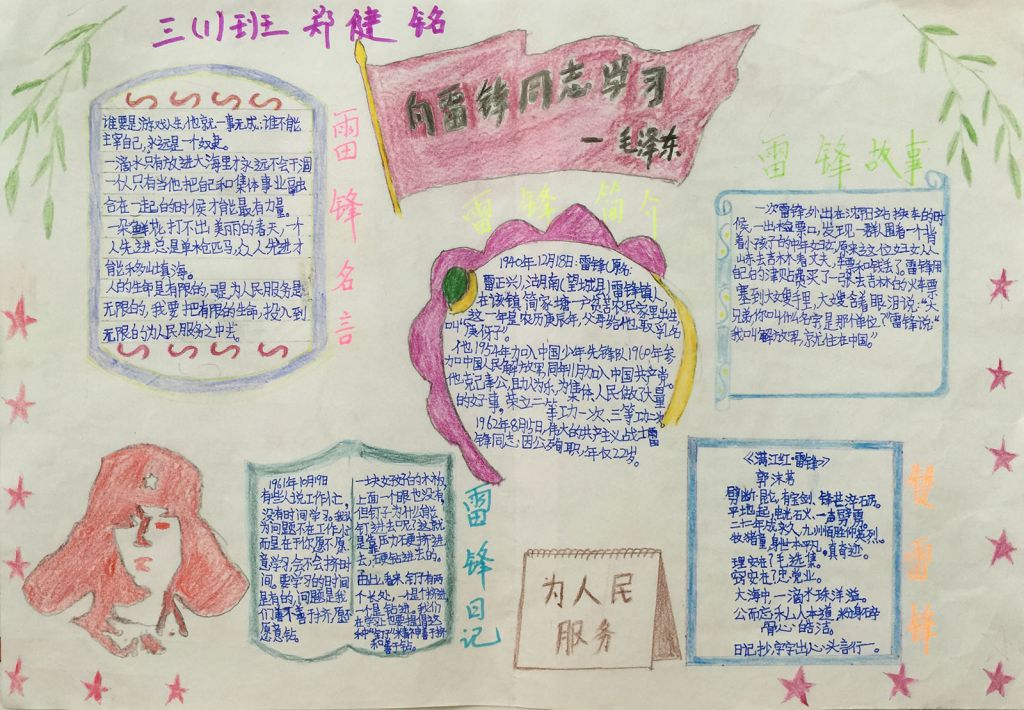 三(1)班 郑健铭
向雷锋同志学习
—毛泽东
雷锋名言
谁要是游戏人生,他就一事无成;谁不能
主宰自己,永远是一个奴隶。
一滴水只有放进大海里才永远不会干涸
一个人只有当他把自己和集体事业融
合在一起的时候才能最有力量。
一朵鲜花打不出美丽的春天,一个
人先进总是单枪匹马,众人先进才
能移山填海。
人的生命是有限的,可是为人民服务是
无限的,我要把有限的生命,投入到
无限的为人民服务之中去。
雷锋简介
1940年12月18日:雷锋(原名:
雷正兴),湖南(望城县)雷锋镇人,
在该镇简家塘一户贫苦农民家里出生
这一年是农历庚辰年,父母给他取乳名
叫“庚伢子”
他1954年加入中国少年先锋队1960年参
加中国人民解放军,同年11月加入中国共产党。
他克己奉公,且助人为乐,为集体、人民做了大量
的好事,荣立二等功一次、三等功二次
1962年8月15日,伟大的共产主义战士雷
锋同志,因公殉职,年仅22岁。
雷锋故事
一次雷锋外出在沈阳站换车的时
候,一出检票口,发现一群围着一个背
着小孩子的中年妇女,原来这位妇女从
山东去吉林看丈夫,车票和钱丢了。雷锋用
自己的津贴费买了一张去吉林的火车票
塞到大嫂手里,大嫂含着眼泪说:“大
兄弟你叫什么名字是那个单位?”雷锋说“
我叫解放军,就住在中国。”
雷锋日记
1961年10月19日
有些人说工作忙,
没有时间学习。我认
为问题不在工作忙
而是在于你愿不愿
意学习,会不会挤时
间。要学习的时间
是有的,问题是我
们善不善于挤,愿不
愿意钻。
一块好好的木板,
上面一个眼也没有
但钉子为什么能
钉进去呢?这就
是靠压力硬挤进
去,硬钻进去的。
由此看来,钉子有两
个长处,一个是挤进
一个是钻进。我们
在学习上也要提倡这
种“钉子”精神善于挤
和善于钻。
为人民
服务
赞雷锋
《满江红·雷锋》
郭沫若
劈断昆仑,有宝剑、锋芒淬砺。
平地起,电光石火,一声劈雳
二十二年成永久,九州百胜你英烈。
牧猪童,身世本平凡,真奇迹。
理安在?毛选集。
窍安在?忠党业。
大海中一滴水珠洋溢。
公而忘私人本道,粉身碎
骨心皓洁。
日记抄,字字出心头,言行一。